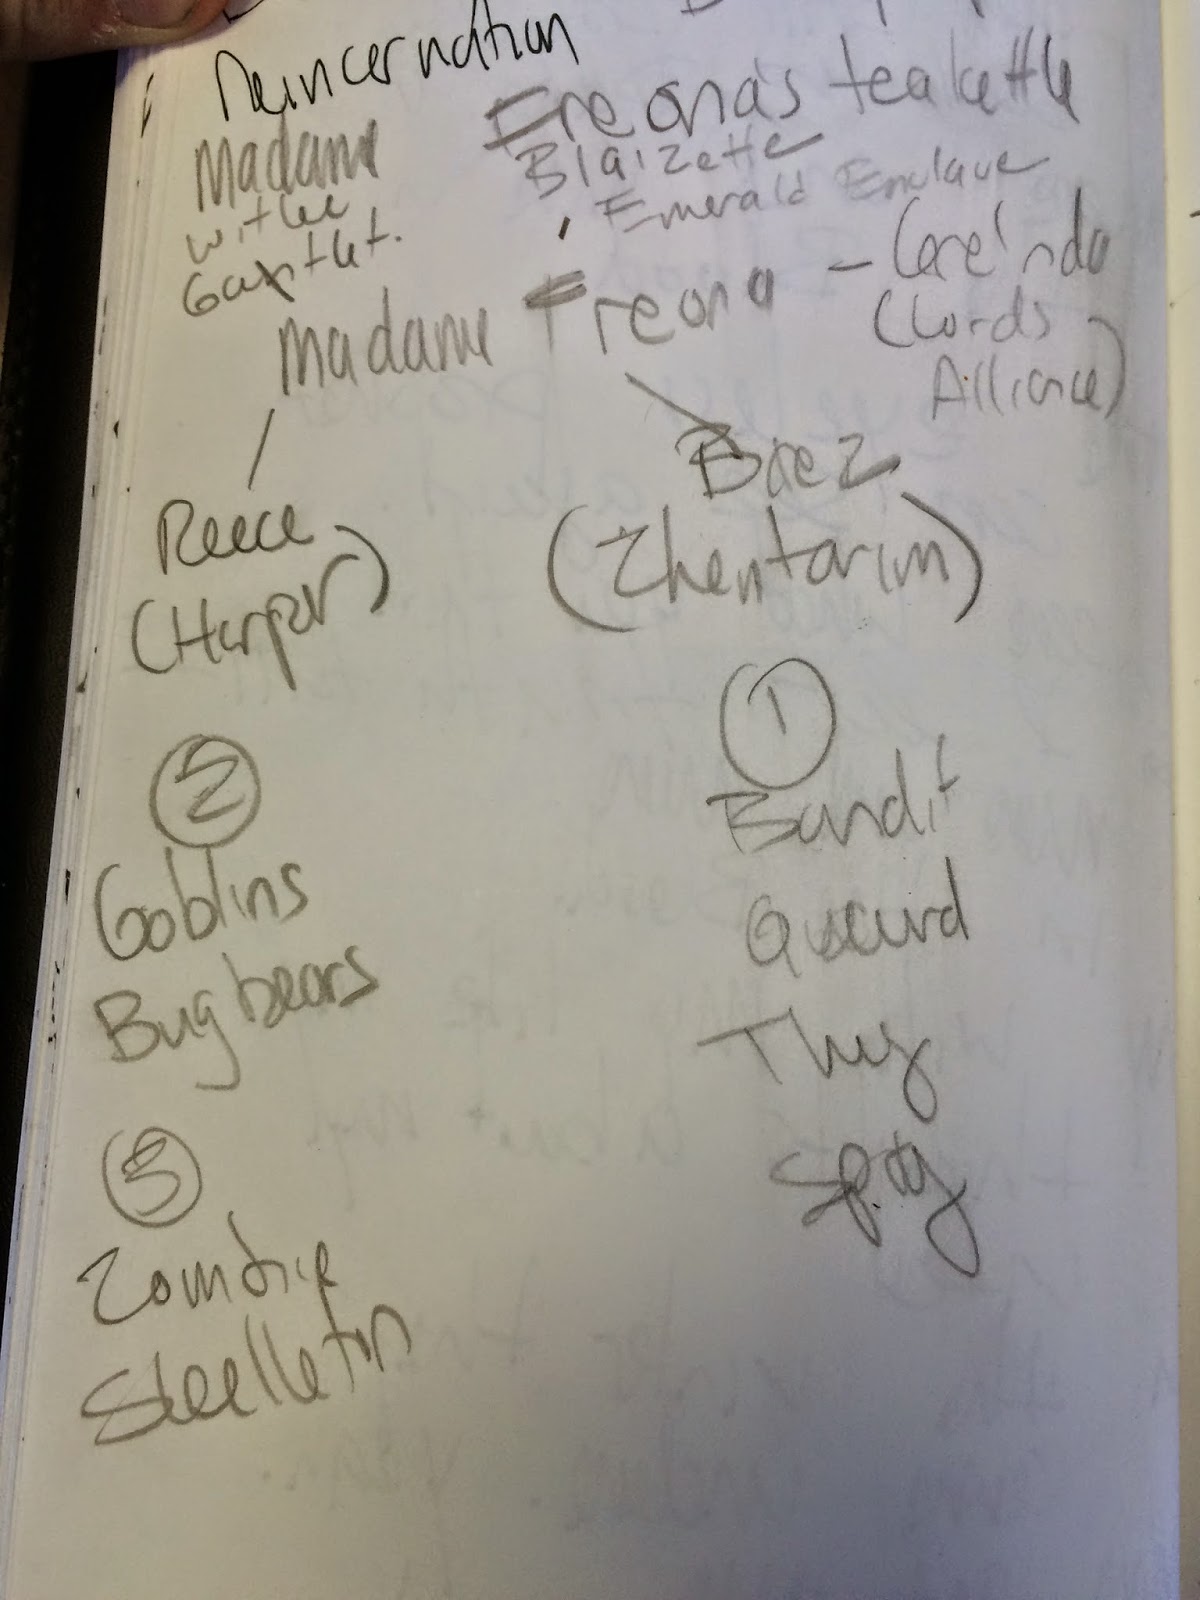 Reincernation
Freona's teakettle
Blaizette
Emerald Enclave
Madame
with
Gauntlet.
Madame Freona - Cere'nda
(Lords
Alliance)
Reece
(Harper)
Baez
(Zhentarim)
1
Bandit
Guaurd
Thug
Spy
2
Goblins
Bugbears
3
Zombie
Skelleton